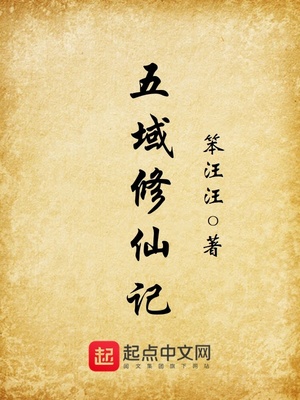 五域修仙记
笨汪汪○著
起点
起点中文网
阅文集团旗下网站